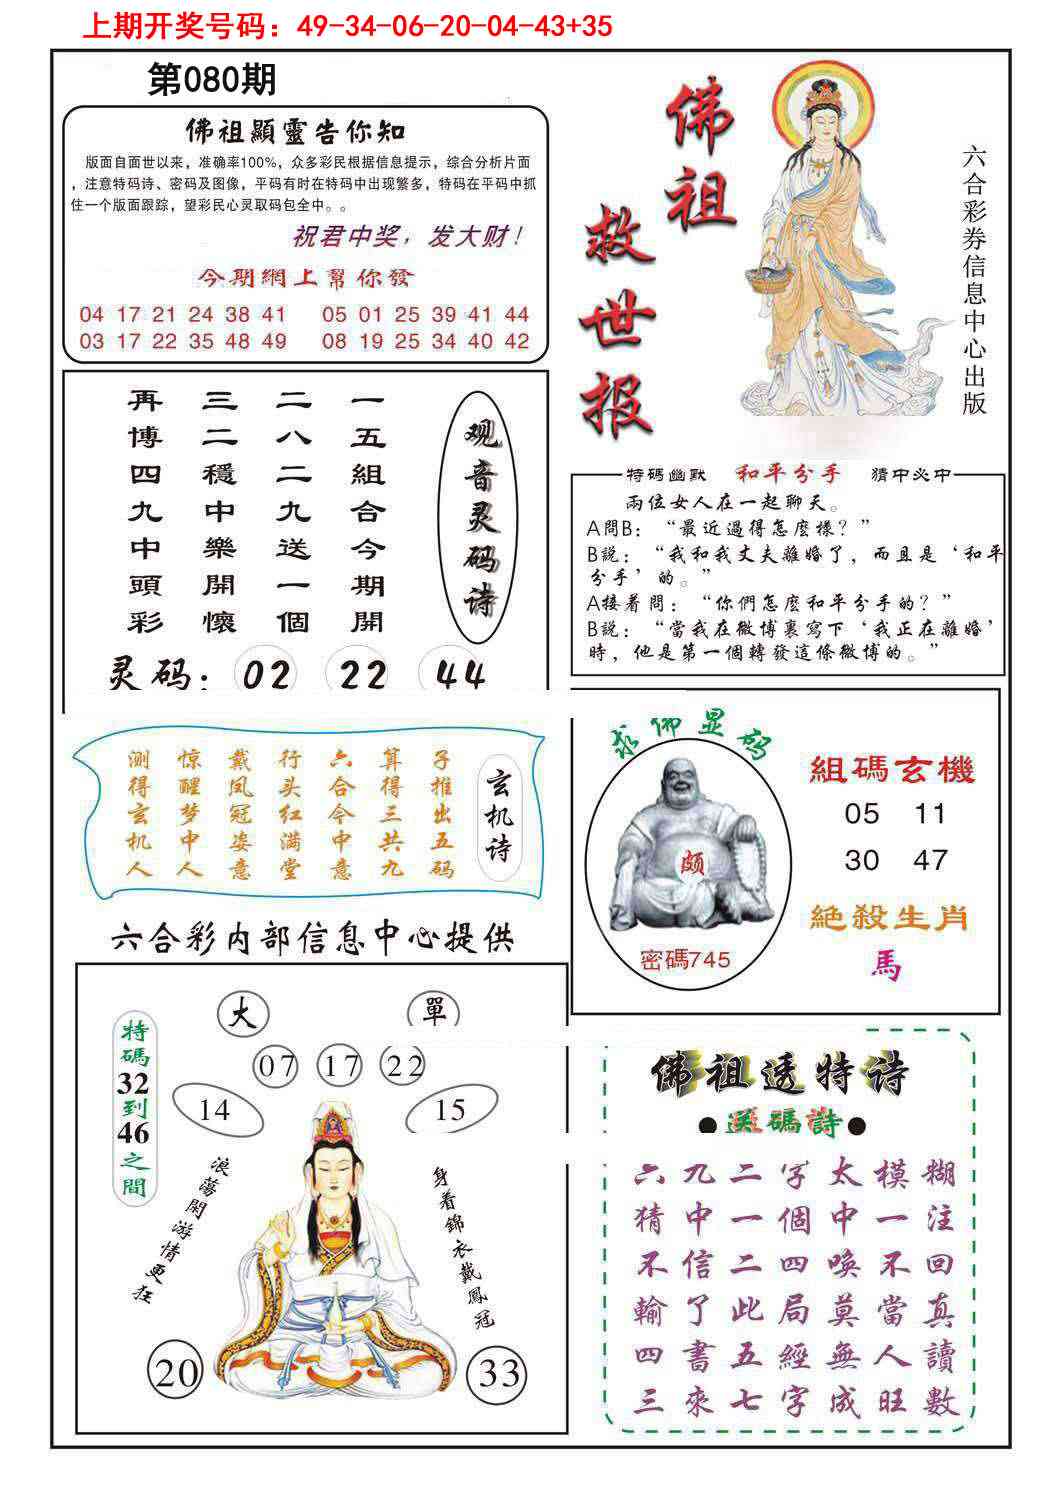 上期开奖号码：49-34-06-20-04-43+35
第080期
佛祖顯靈告你知
版面自面世以来，准确率100%，众多彩民根据信息提示，综合分析片面
，注意特码诗、密码及图像，平码有时在特码中出现繁多，特码在平码中抓
住一个版面跟踪，望彩民心灵取码包全中。。
祝君中奖，发大财！
今期網上幫你發
04 17 21 24 38 41 05 01 25 39 41 44
03 17 22 35 48 49 08 19 25 34 40 42
佛祖
救世报
六合彩券信息中心出版
观音灵码诗
一五組合今期開
二八二九送一個
三二穩中樂開懷
再博四九中頭彩
灵码：02 22 44
特碼幽默 和平分手 猜中必中
兩位女人在一起聊天。
A問B：“最近過得怎麽樣？”
B説：“我和我丈夫離婚了，而且是‘和平
分手’的。”
A接着問：“你們怎麽和平分手的？”
B説：“當我在微博裏寫下‘我正在離婚’
時，他是第一個轉發這條微博的。”
玄机诗
子推出五码
算得三共九
六合今中意
行头红满堂
戴凤冠姿意
惊醒梦中人
测得玄机人
求佛显码
颇
密碼745
組碼玄機
05 11
30 47
絶殺生肖
馬
六合彩内部信息中心提供
大 單
07 17 22
14 15
特碼32到46之間
浪蕩閑游情更狂
身着錦衣戴鳳冠
20 33
佛祖透特诗
●送碼詩●
六九二字太模糊
猜中一個中一注
不信二四喚不回
輸了此局莫當真
四書五經無人讀
三來七字成旺數